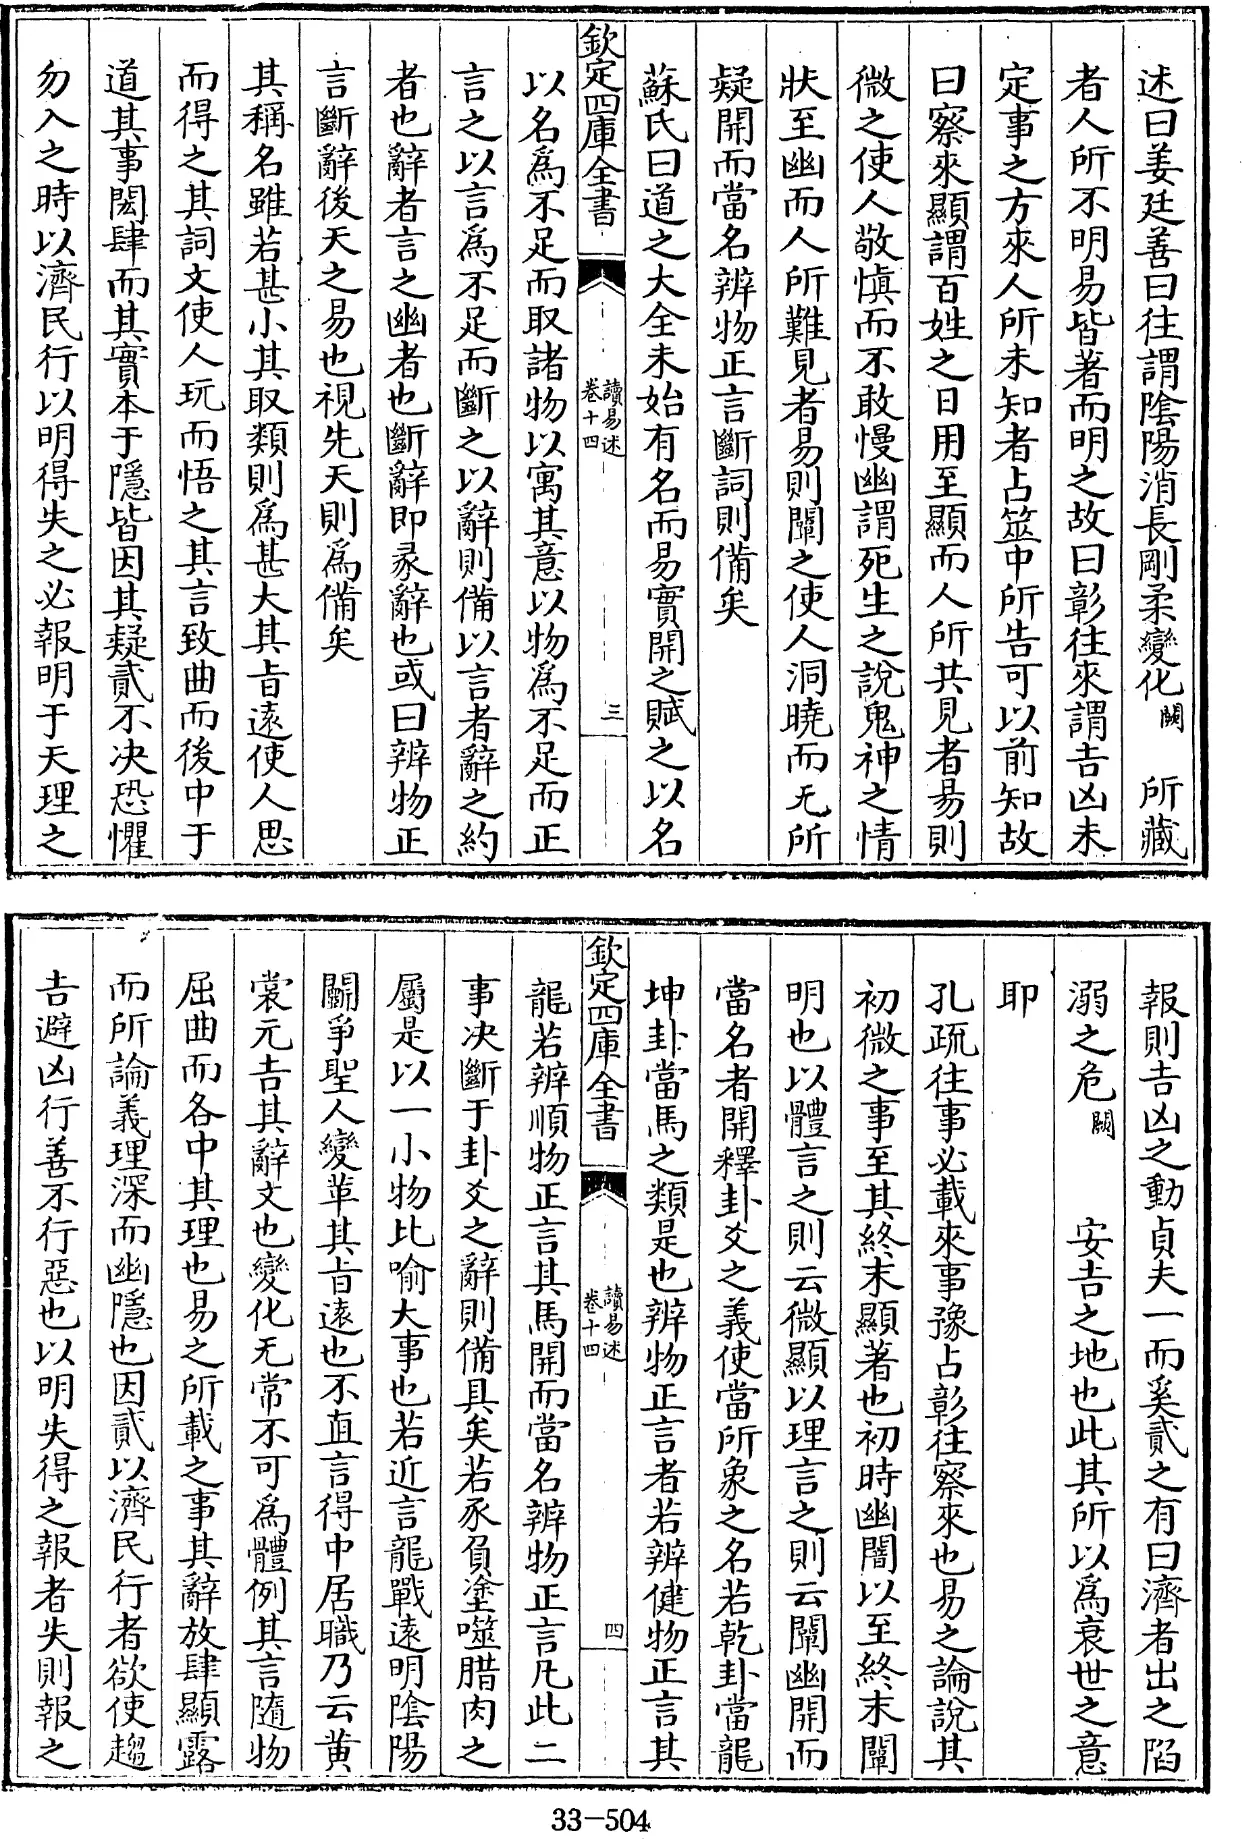 述曰姜廷善曰往謂陰陽消長剛柔變化闕 所藏
者人所不明易皆著而明之故曰彰往來謂吉凶未
定事之方來人所未知者占筮中所告可以前知故
曰察來顯謂百姓之日用至顯而人所共見者易則
微之使人敬慎而不敢慢幽謂死生之說鬼神之情
狀至幽而人所難見者易則闡之使人洞曉而无所
疑開而當名辨物正言斷詞則備矣
蘇氏曰道之大全未始有名而易實開之賦之以名
欽定四庫全書
讀易述
卷十四
三
以名為不足而取諸物以寓其意以物為不足而正
言之以言為不足而斷之以辭則備以言者辭之約
者也辭者言之幽者也斷辭即彖辭也或曰辨物正
言斷辭後天之易也視先天則為備矣
其稱名雖若甚小其取類則為甚大其旨遠使人思
而得之其詞文使人玩而悟之其言致曲而後中于
道其事閎肆而其實本于隱皆因其疑貳不决恐懼
勿入之時以濟民行以明得失之必報明于天理之
報則吉凶之動貞夫一而奚貳之有曰濟者出之陷
溺之危闕 安吉之地也此其所以為衰世之意
耶
孔疏往事必載來事豫占彰往察來也易之論說其
初微之事至其終末顯著也初時幽闇以至終末闡
明也以體言之則云微顯以理言之則云闡幽開而
當名者開釋卦爻之義使當所象之名若乾卦當龍
坤卦當馬之類是也辨物正言者若辨健物正言其
欽定四庫全書
讀易述
卷十四
四
龍若辨順物正言其馬開而當名辨物正言凡此二
事决斷于卦爻之辭則備具矣若豕負塗噬腊肉之
屬是以一小物比喻大事也若近言龍戰遠明陰陽
鬭爭聖人變革其旨遠也不直言得中居職乃云黄
裳元吉其辭文也變化无常不可為體例其言隨物
屈曲而各中其理也易之所載之事其辭放肆顯露
而所論義理深而幽隱也因貳以濟民行者欲使趨
吉避凶行善不行惡也以明失得之報者失則報之
33-504